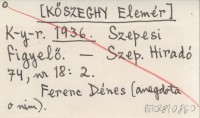 [KŐSZEGHY Elemér]
K-y-r. 1936. Szepesi
Figyelő. — Szep. Hiradó
74, nr 18: 2.
Ferenc Dénes (anegdota
o nim).